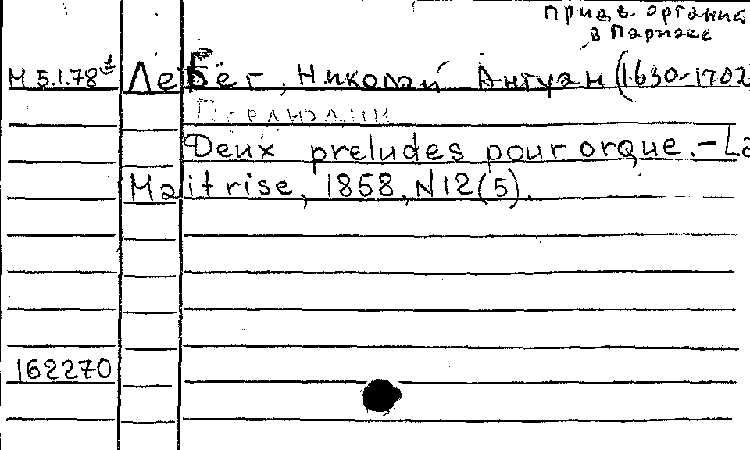 придв. органис
в Париже
М 5.1.78 Лебег, Николай Антуан (1630-1702
Прелюдии
Deux preludes pour orgue. - La
Maitrise, 1858, N12(5).
162270